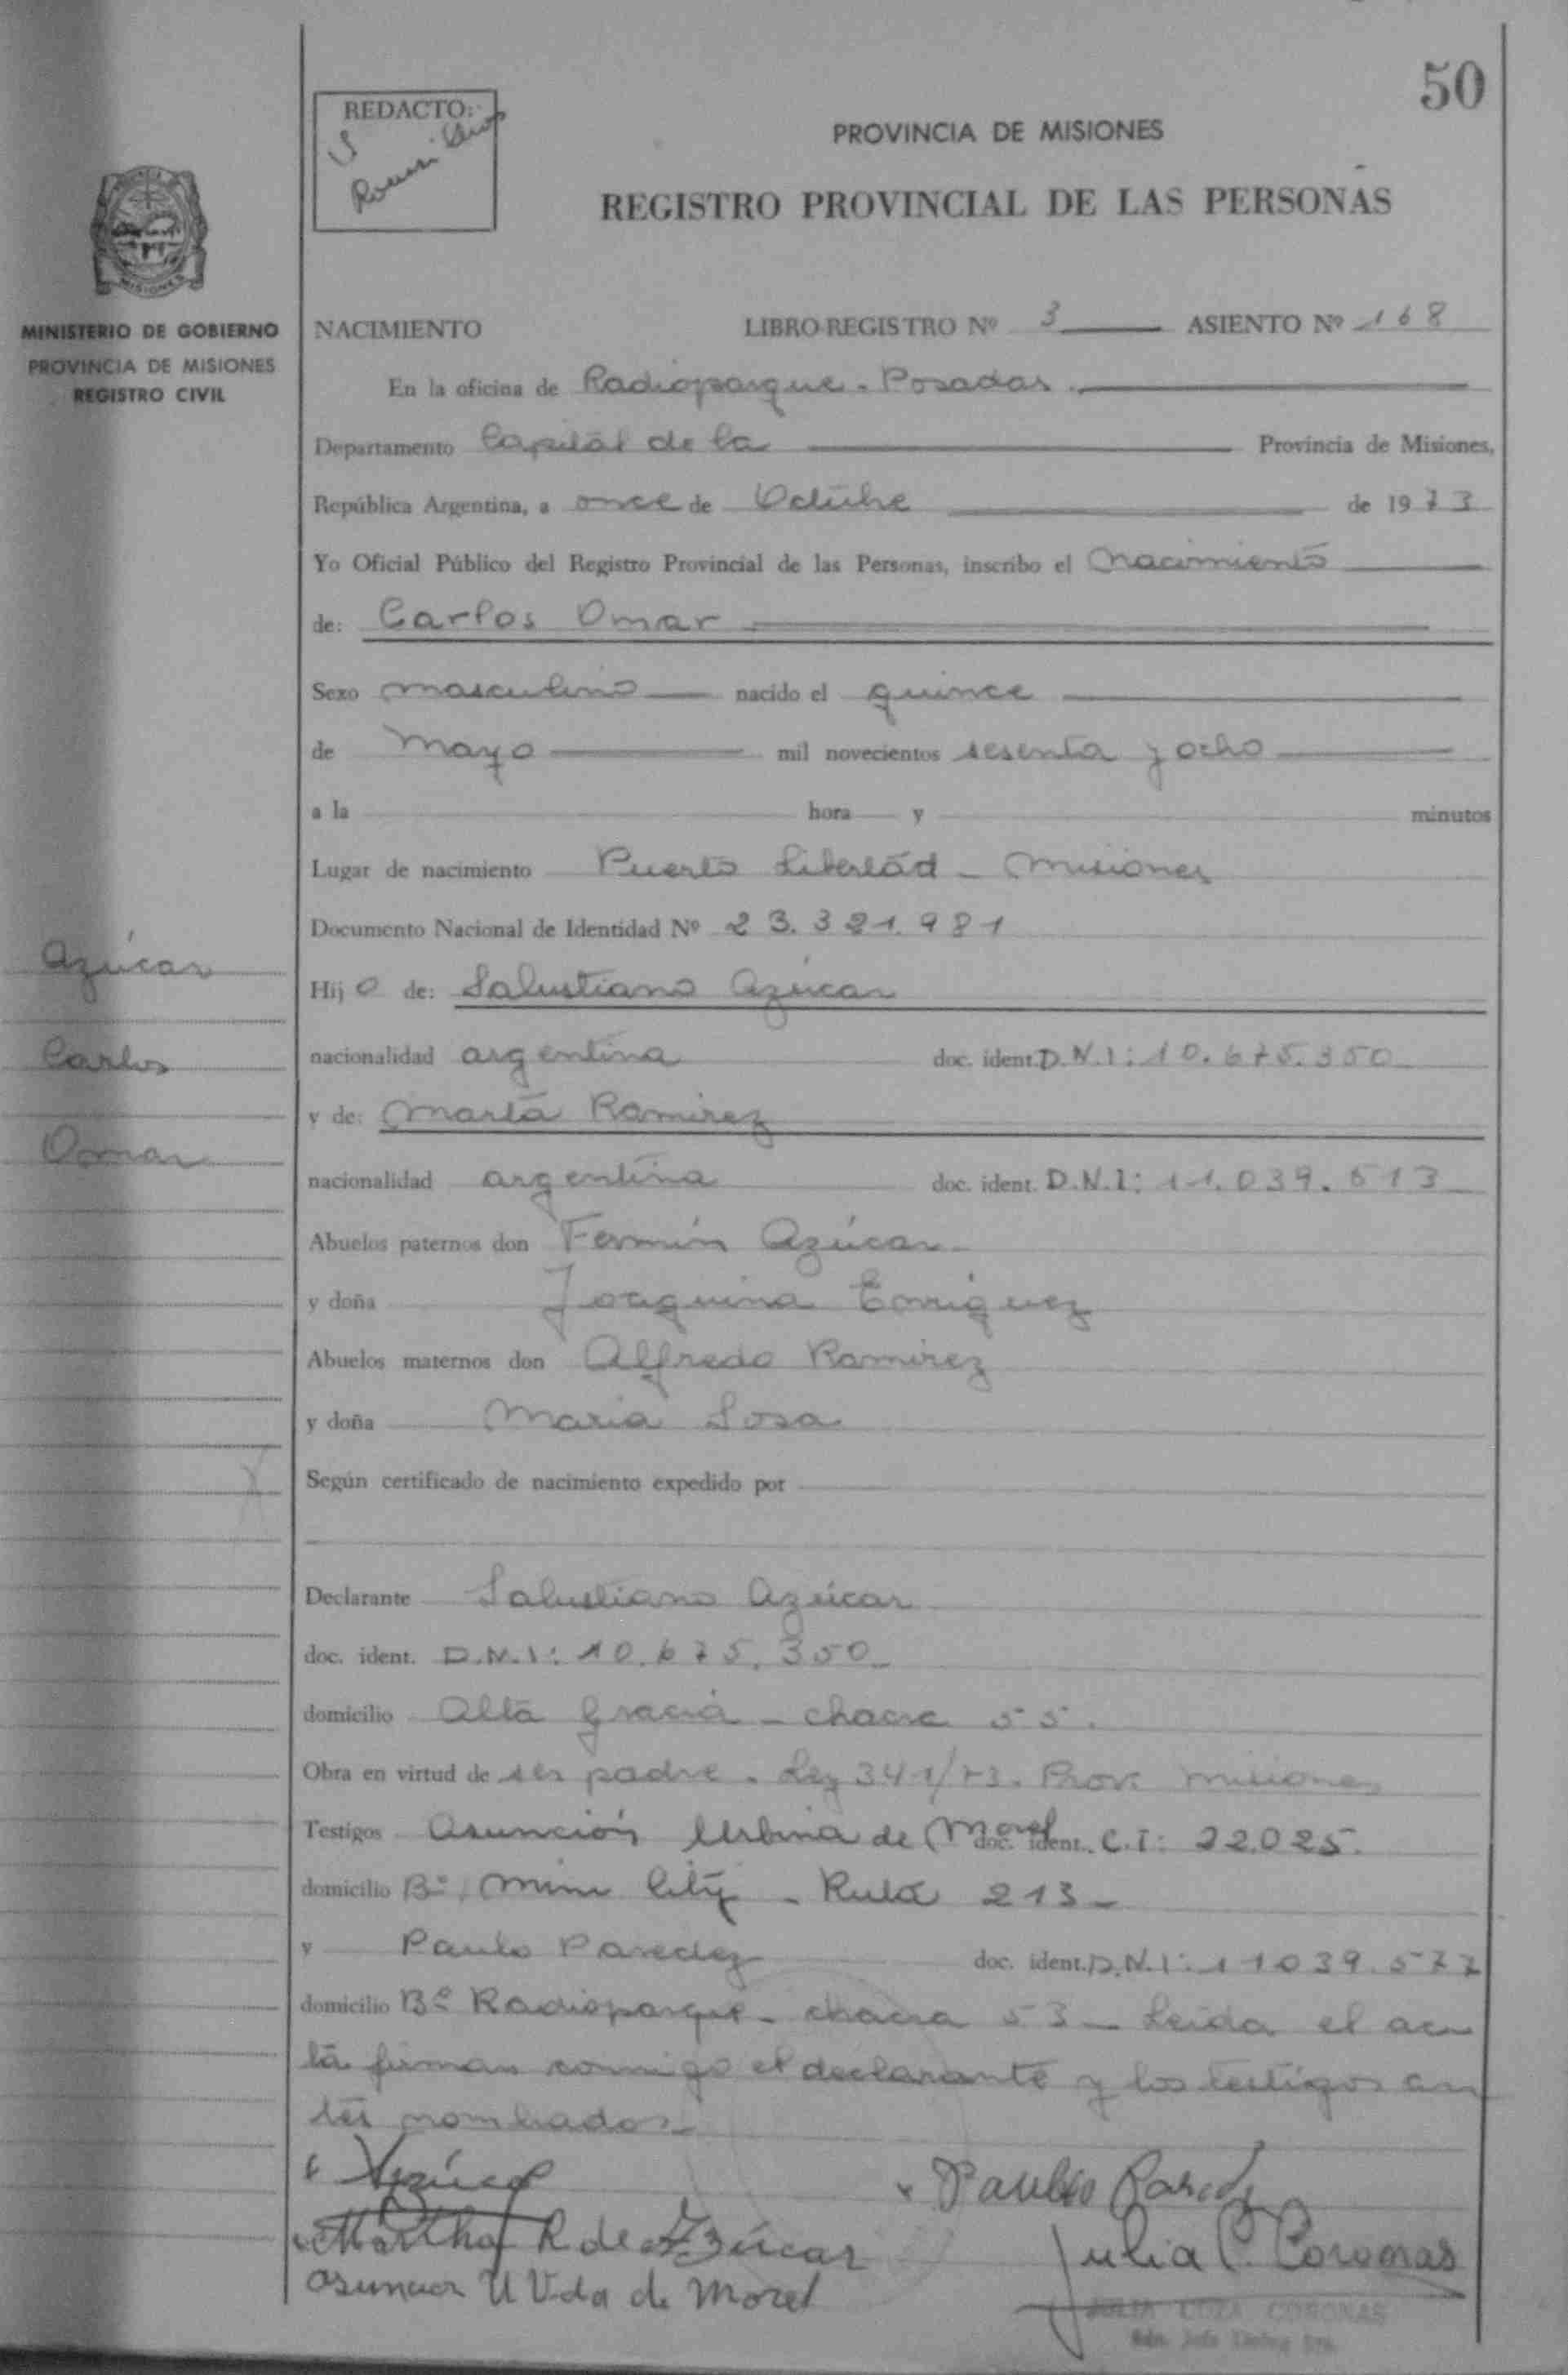 50
REDACTO:
PROVINCIA DE MISIONES
REGISTRO PROVINCIAL DE LAS PERSONAS
MISIONES
MINISTERIO DE GOBIERNO
PROVINCIA DE MISIONES
REGISTRO CIVIL
NACIMIENTO LIBRO REGISTRO Nº 3 ASIENTO Nº 168
En la oficina de Radioparque - Posadas.
Departamento Capital de la Provincia de Misiones,
República Argentina, a once de Octubre de 1973
Yo Oficial Público del Registro Provincial de las Personas, inscribo el Nacimiento
de: Carlos Omar
Sexo masculino nacido el quince
de Mayo mil novecientos sesenta y ocho
a la hora y minutos
Lugar de nacimiento Puerto Libertad - Misiones
Documento Nacional de Identidad Nº 23.321.981
Azúcar
Hijo de: Salustiano Azúcar
Carlos
nacionalidad argentina doc. ident. D.N.I: 10.675.350
y de: Marta Ramirez
Omar
nacionalidad argentina doc. ident. D.N.I: 11.039.513
Abuelos paternos don Fermín Azúcar
y doña Joaquina Enriquez
Abuelos maternos don Alfredo Ramirez
y doña Maria Sosa
Según certificado de nacimiento expedido por
Declarante Salustiano Azúcar
doc. ident. D.N.I: 10.675.350
domicilio Alta Gracia - chacra 55.
Obra en virtud de ser padre. Ley 341/73. Prov. Misiones
Testigos Asunción Urbina de Morel doc. ident. C.I: 22.025.
domicilio Bº Mini City - Ruta 213 -
y Paulo Paredez doc. ident. D.N.I: 11039.577
domicilio Bº Radioparque - chacra 53 - Leida el ac
ta firman conmigo el declarante y los testigos an
tes nombrados -
Azúcar Paulo Paredez
Martha R de Azúcar Julia C. Coronas
Asuncion U Vda de Morel
JULIA CORONAS